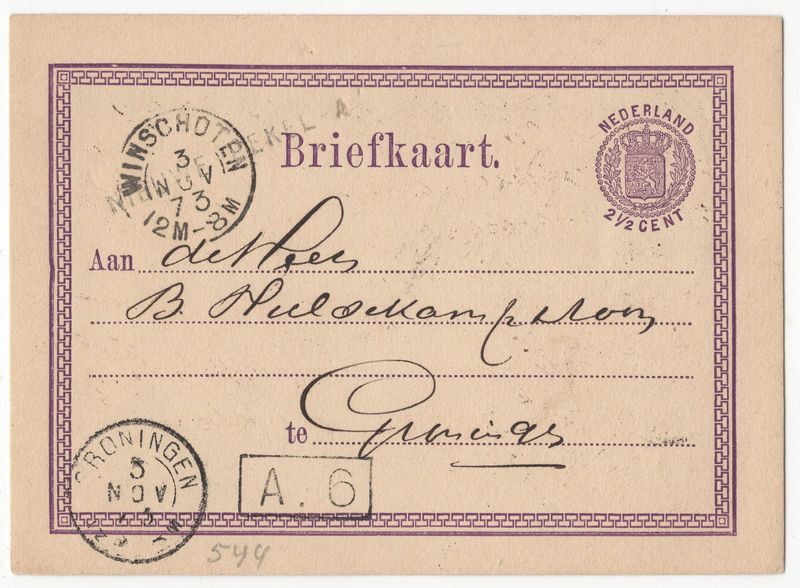 WINSCHOTEN
3
NOV
73
12M-8M
Briefkaart.
NEDERLAND
2½ CENT
Aan de Heer
B. Huldekamp & Zoon
te Groningen
GRONINGEN
3
NOV
A. 6
544